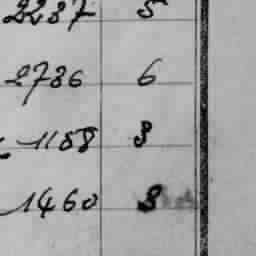 2237 5
2736 6
1158 3
1460 3